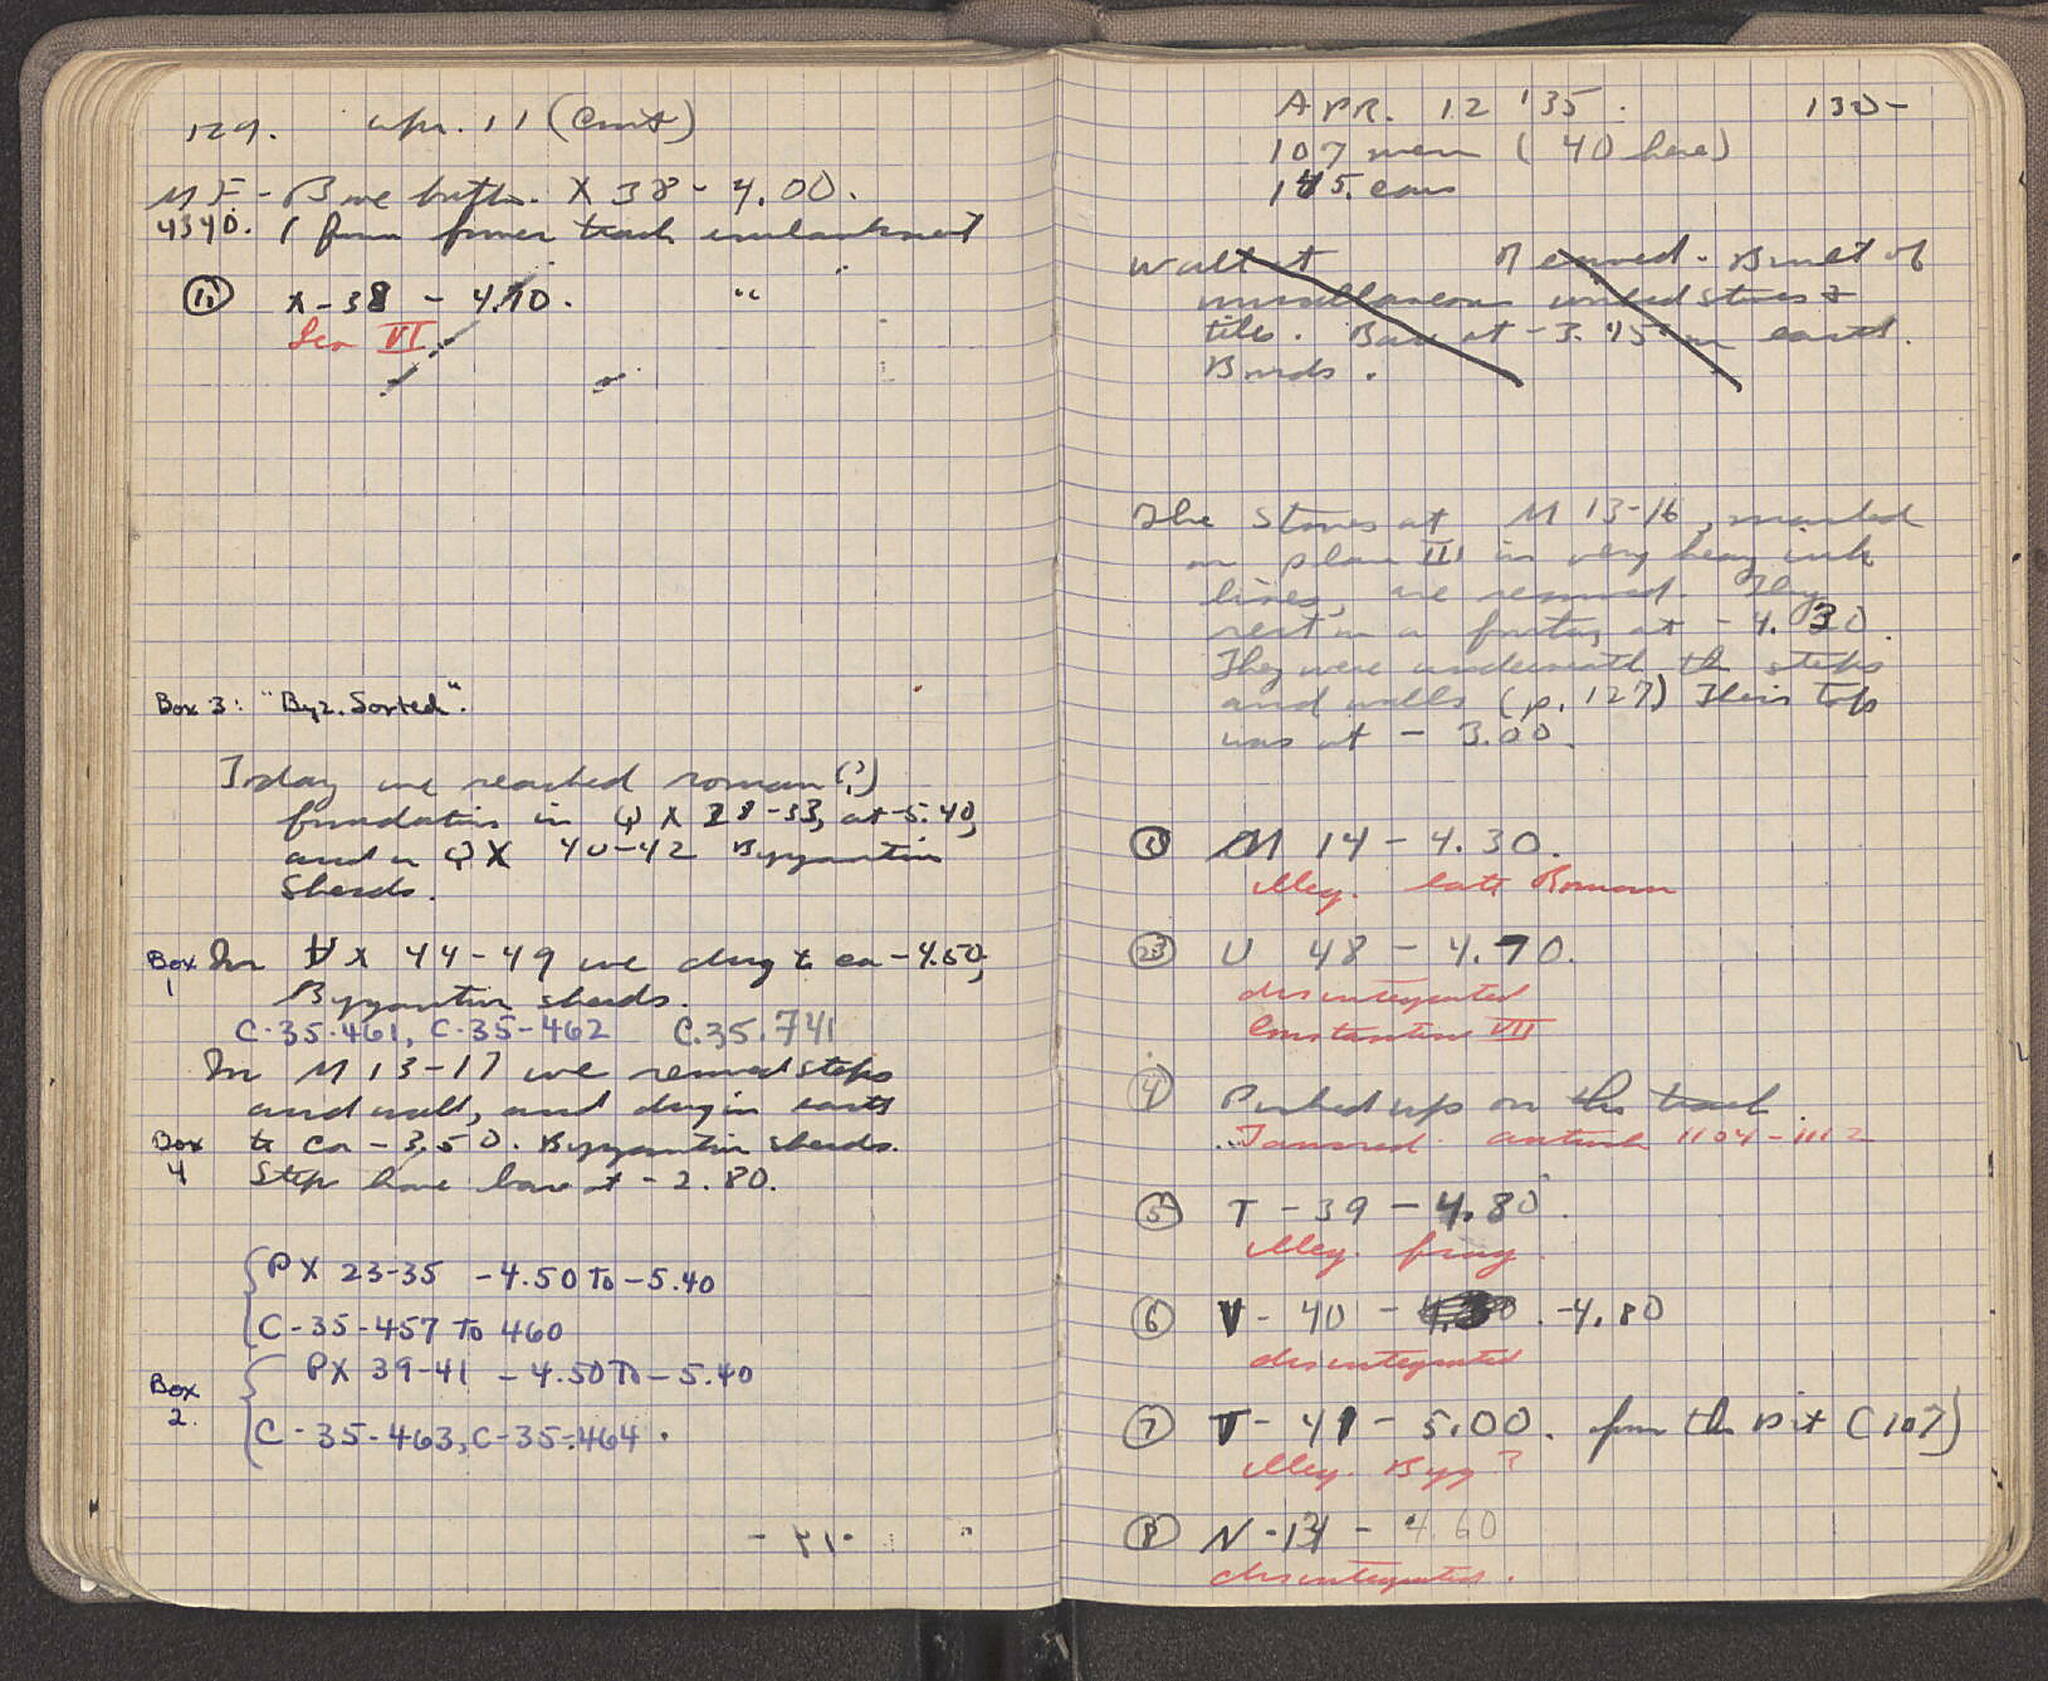 129. Apr. 11 (Cont)
MF - Bone button. X 38 - 4.00.
4340. ( from former track embankment
⑪ X - 38 - 4.10. "
Leo VI
Box 3: "Byz. Sorted".
Today we reached roman (?)
foundations in Q X 28-33, at -5.40,
and in QX 40-42 Byzantine
Sherds.
Box 1 In X 44-49 we dug to ca -4.50,
Byzantine sherds.
C-35-461, C-35-462 C.35.741
In M 13-17 we removed steps
and wall, and dug in earth
Box 4 to Ca - 3.50. Byzantine sherds.
Steps have base at - 2.80.
PX 23-35 -4.50 To -5.40
C-35-457 To 460
PX 39-41 -4.50 To -5.40
Box 2.
C-35-463, C-35-464.
APR. 12 '35. 130-
107 men (40 here)
145. cars
Wall at Removed. Built of
miscellaneous worked stones &
tiles. Base at -3.45 in earth.
The stones at M 13-16, marked
on plan III in very heavy ink
lines, are removed. They
rest on a footing at - 4.30.
They were underneath the steps
and walls (p. 127) Their top
was at - 3.00.
M 14 - 4.30.
illeg. late Roman
U 48 - 4.70.
disintegrated
Constantine VII
④ Picked up on the track.
Tancred. Antioch 1104-1112
⑤ T - 39 - 4.80.
illeg. frag.
⑥ V - 40 - -4.80
disintegrated
⑦ T - 41 - 5.00. from the pit (107)
illeg. Byz?
⑧ N - 14 - 4.60
disintegrated.